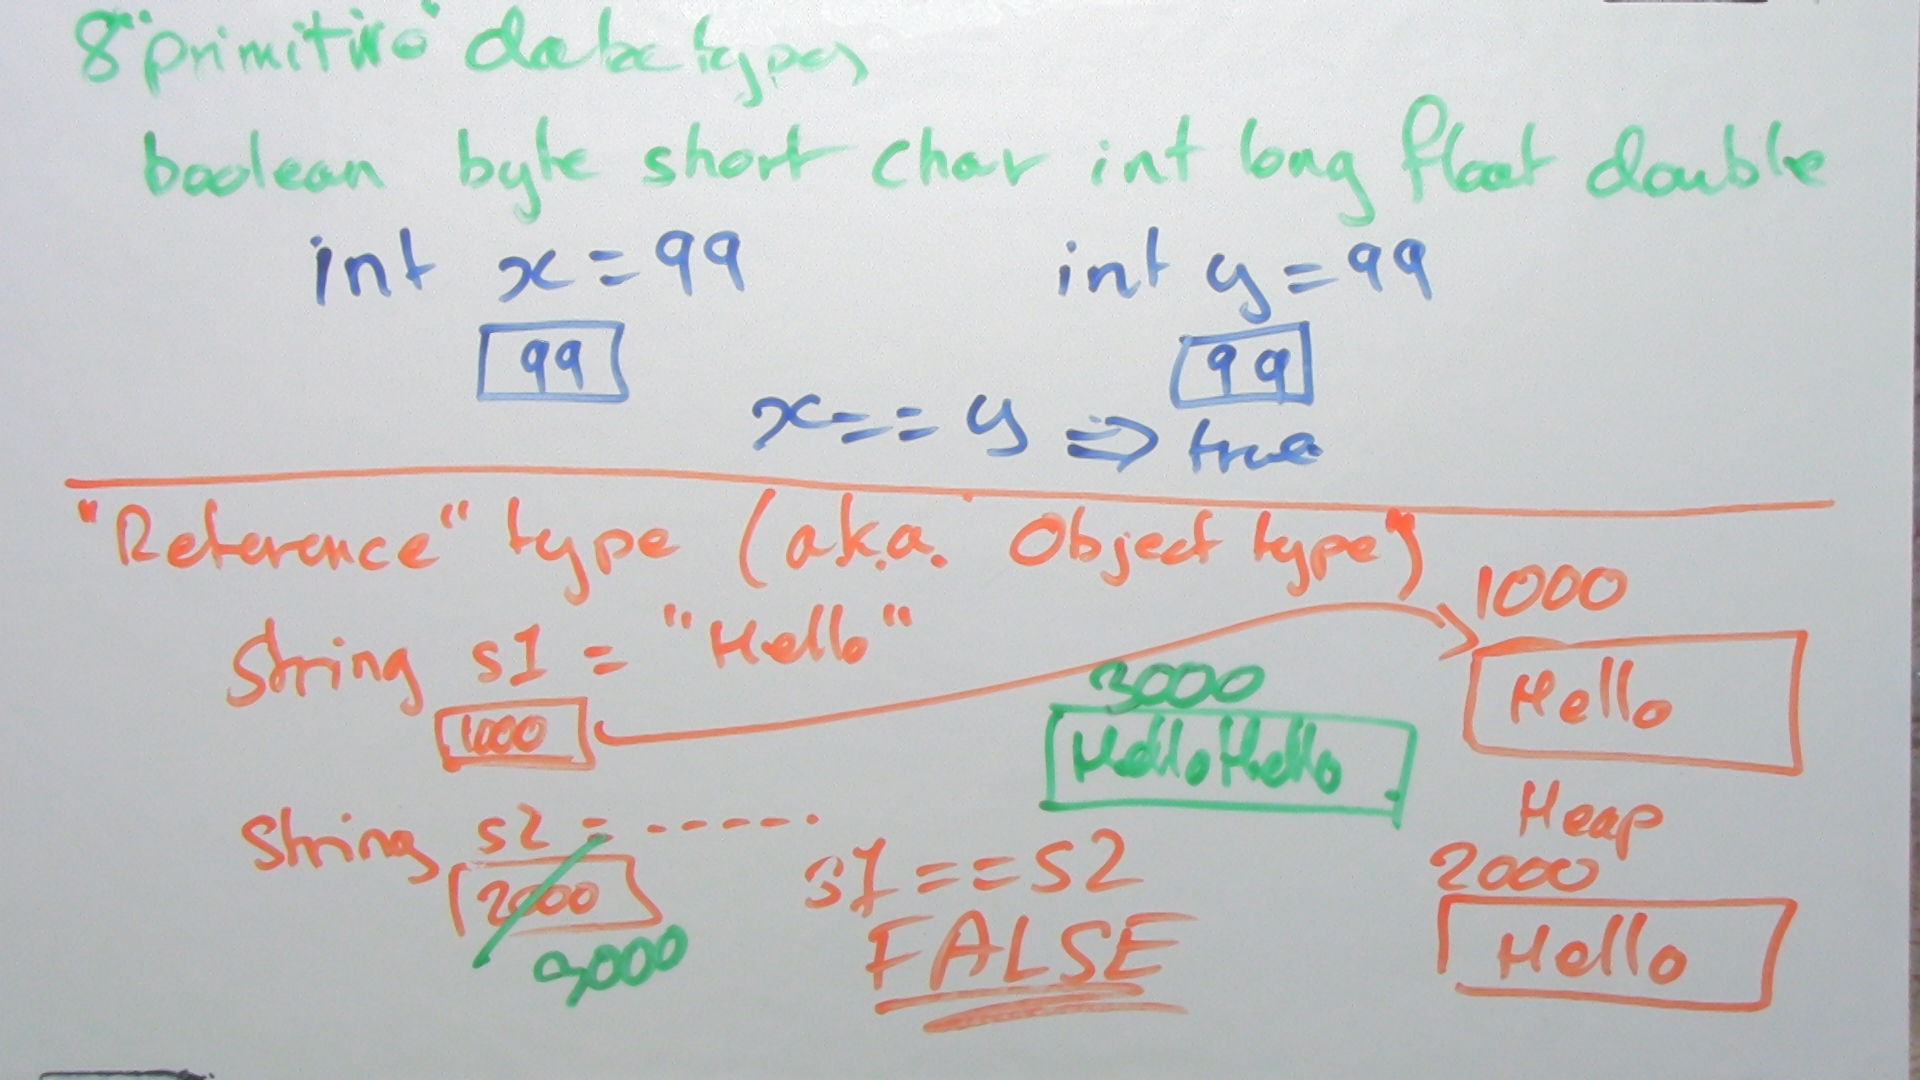 8 "primitive" data types
boolean byte short char int long float double
int x = 99
int y = 99
99
99
x == y ⇒ true
"Reference" type (a.k.a. "Object type")
1000
String s1 = "Hello"
1000
3000
HelloHello
Hello
Heap
String s2 = - - - - - .
2000
3000
s1 == s2
FALSE
2000
Hello